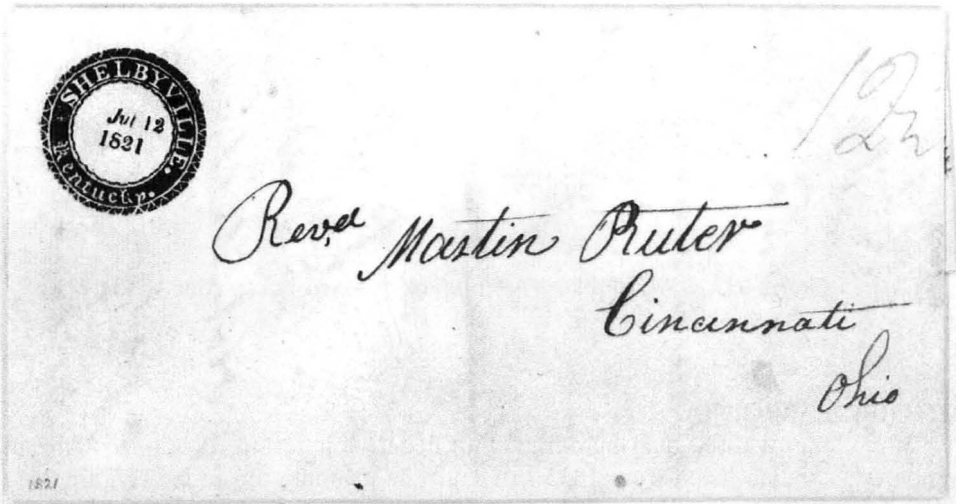 SHELBYVILLE.
Kentucky.
Jul 12
1821
12½
Revd Martin Ruter
Cincinnati
Ohio
1821